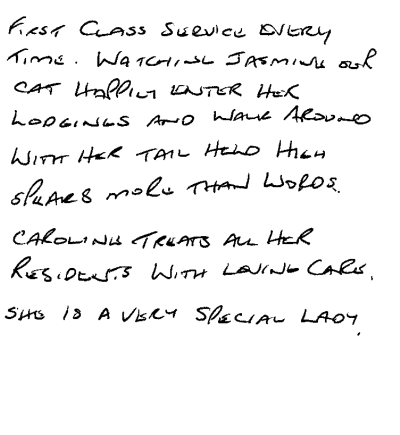 FIRST CLASS SERVICE EVERY
TIME. WATCHING JASMINE OUR
CAT HAPPILY ENTER HER
LODGINGS AND WALK AROUND
WITH HER TAIL HELD HIGH
SPEAKS MORE THAN WORDS.
CAROLINE TREATS ALL HER
RESIDENTS WITH LOVING CARE.
SHE IS A VERY SPECIAL LADY.